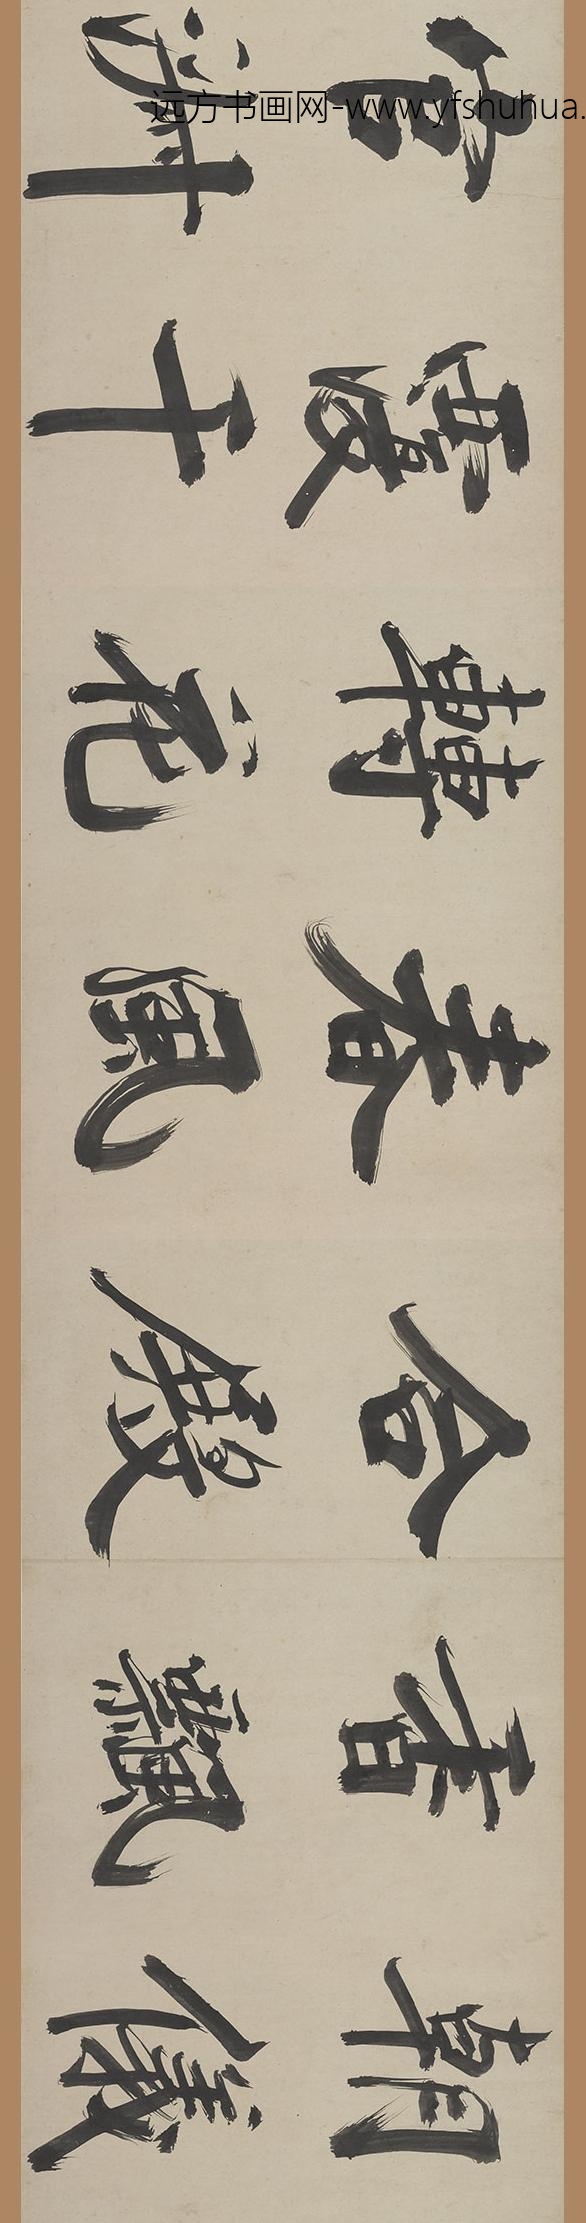 朝儀
香飄
合殿
春風
轉花
覆千
官淑
远方书画网-www.yfshuhua.